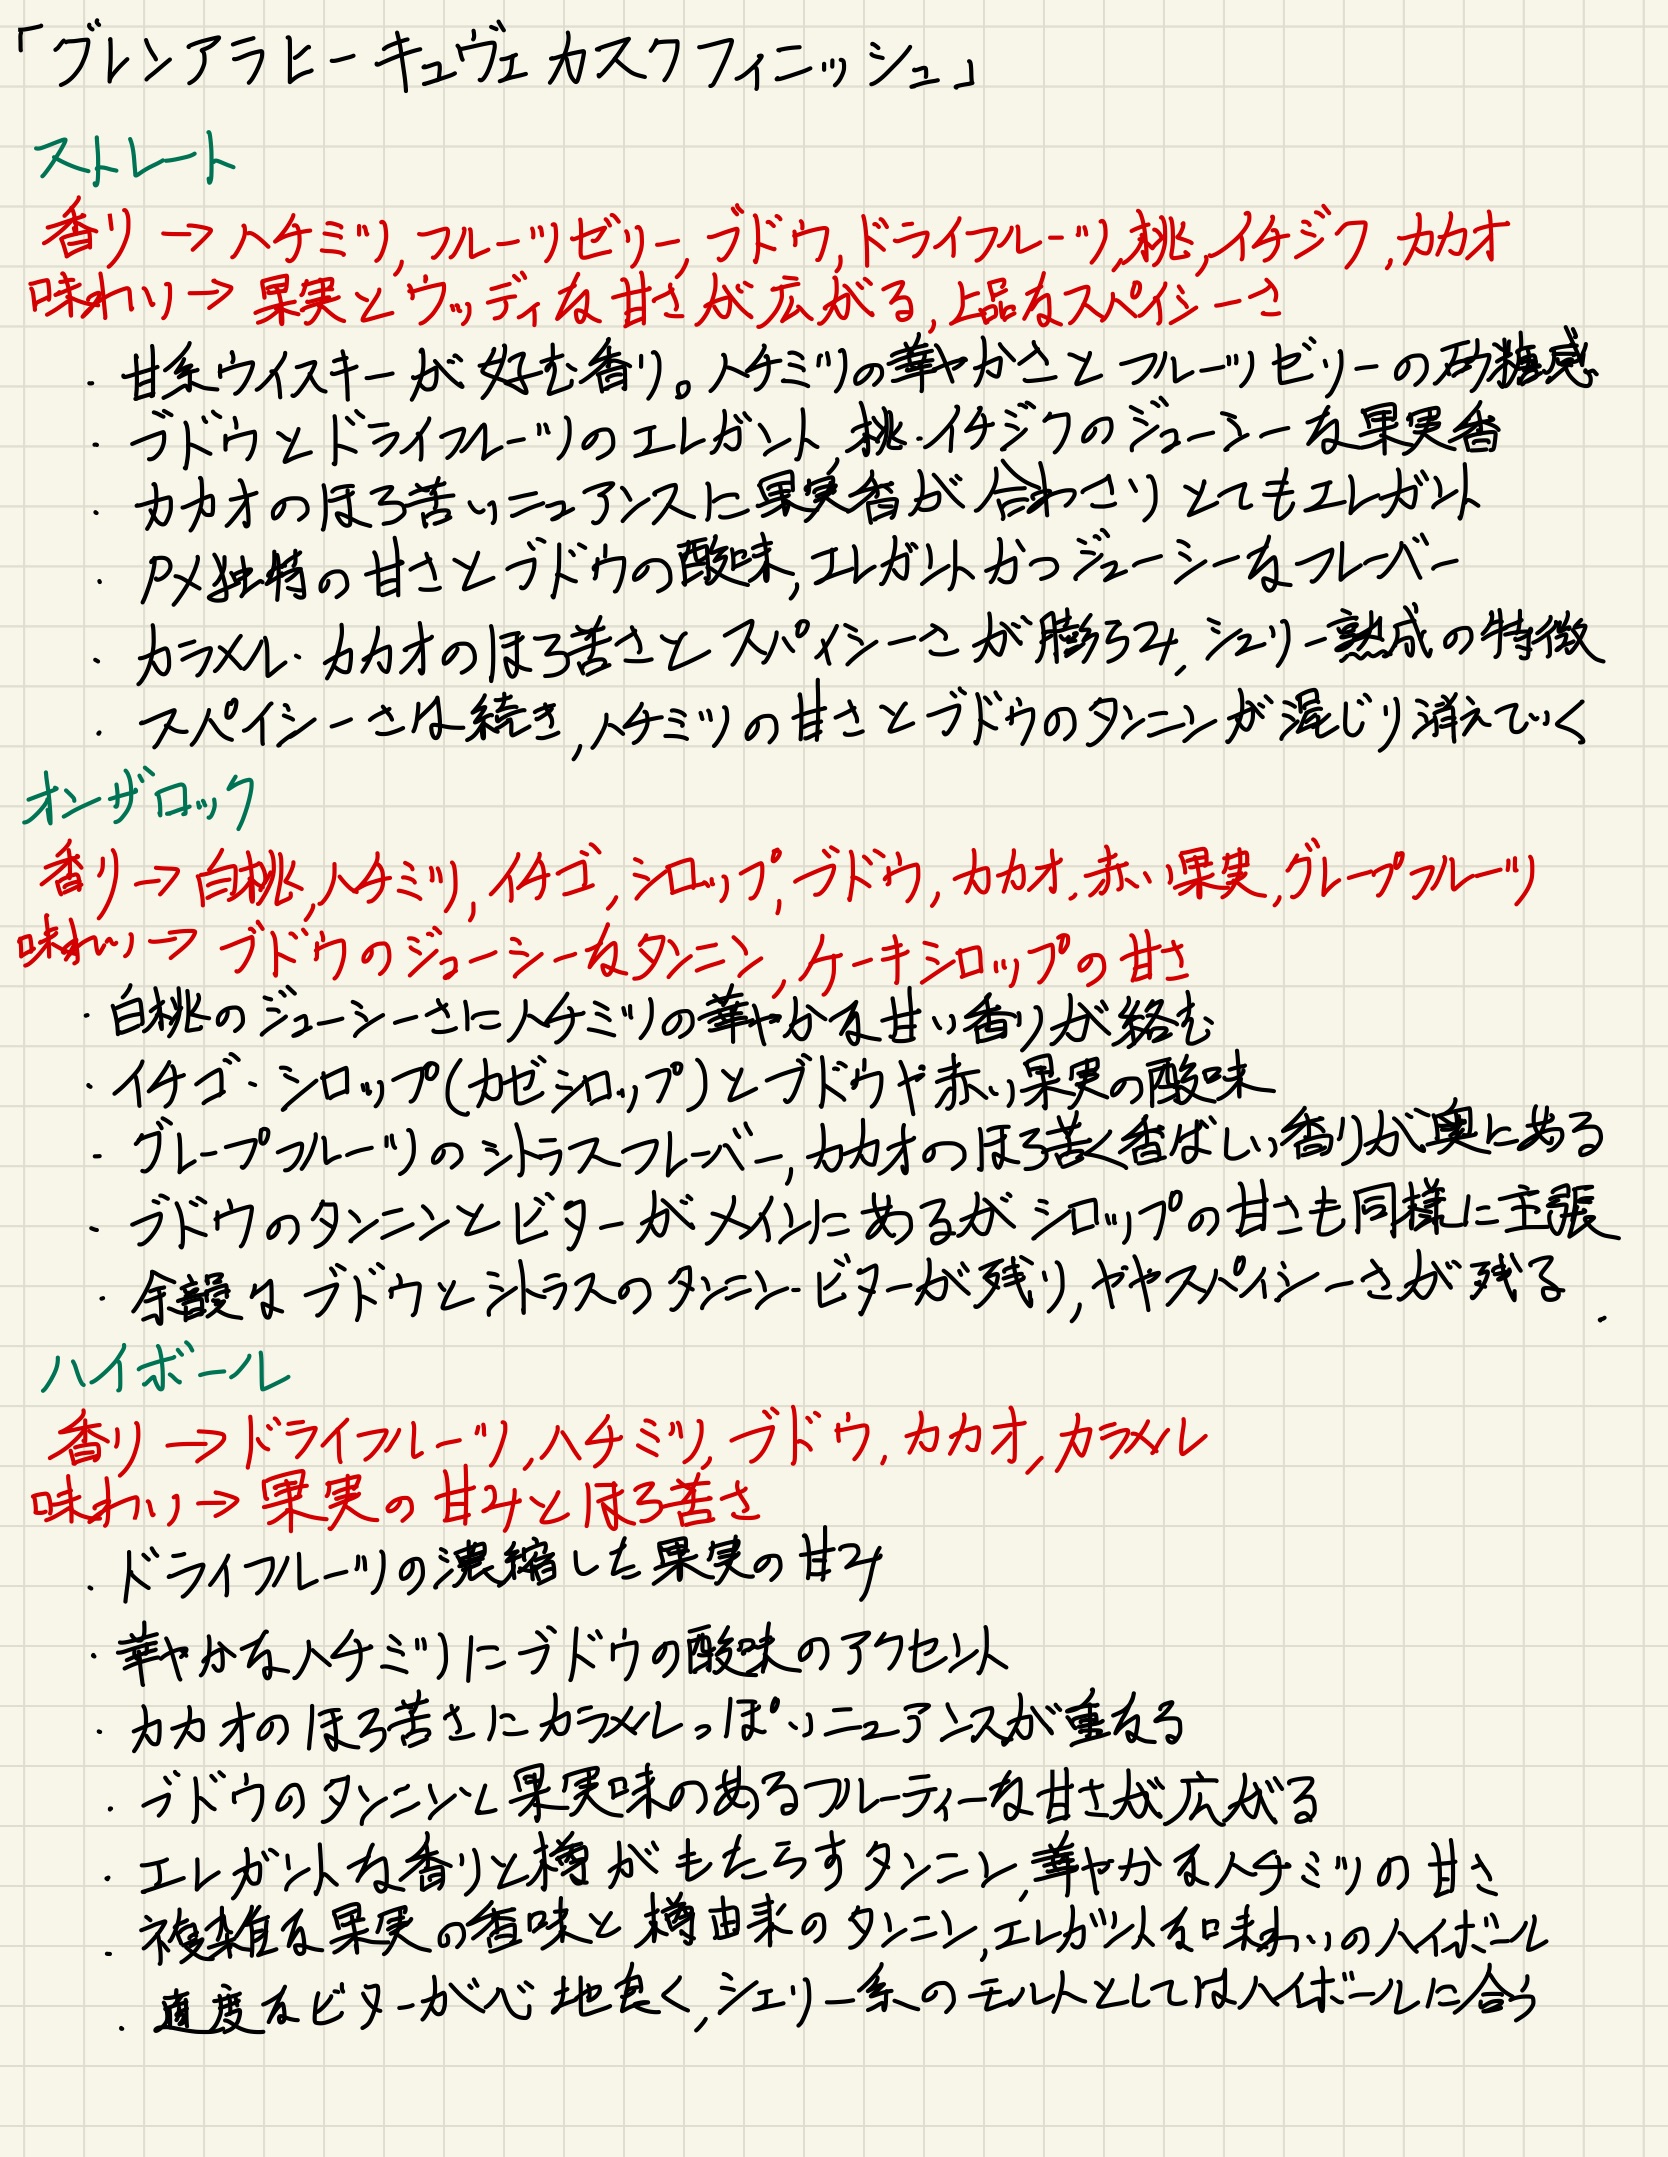 「グレンアラヒー キュヴェ カスクフィニッシュ」
ストレート
香り → ハチミツ, フルーツゼリー, ブドウ, ドライフルーツ, 桃, イチジク, カカオ
味わい → 果実とウッディな甘さが広がる, 上品なスパイシーさ
・甘系ウイスキーが好む香り。ハチミツの華やかさとフルーツゼリーの砂糖感
・ブドウとドライフルーツのエレガント, 桃・イチジクのジューシーな果実香
・カカオのほろ苦いニュアンスに果実香が合わさりとてもエレガント
・アメ独特の甘さとブドウの酸味, エレガントかつジューシーなフレーバー
・カラメル・カカオのほろ苦さとスパイシーさが膨らみ, シェリー熟成の特徴
・スパイシーさは続き, ハチミツの甘さとブドウのタンニンが混じり消えていく
オンザロック
香り → 白桃, ハチミツ, イチゴ, シロップ, ブドウ, カカオ, 赤い果実, グレープフルーツ
味わい → ブドウのジューシーなタンニン, ケーキシロップの甘さ
・白桃のジューシーさにハチミツの華やかな甘い香りが絡む
・イチゴ・シロップ(カゼシロップ)とブドウや赤い果実の酸味
・グレープフルーツのシトラスフレーバー, カカオのほろ苦く香ばしい香りが奥にある
・ブドウのタンニンとビターがメインにあるがシロップの甘さも同様に主張
・余韻はブドウとシトラスのタンニン・ビターが残り, ややスパイシーさが残る
ハイボール
香り → ドライフルーツ, ハチミツ, ブドウ, カカオ, カラメル
味わい → 果実の甘みとほろ苦さ
・ドライフルーツの濃縮した果実の甘み
・華やかなハチミツにブドウの酸味のアクセント
・カカオのほろ苦さにカラメルっぽいニュアンスが重なる
・ブドウのタンニンと果実味のあるフルーティーな甘さが広がる
・エレガントな香りと樽がもたらすタンニン, 華やかなハチミツの甘さ
・複雑な果実の香味と樽由来のタンニン, エレガントな味わいのハイボール
・適度なビターが心地良く, シェリー系のモルトとしてはハイボールに合う